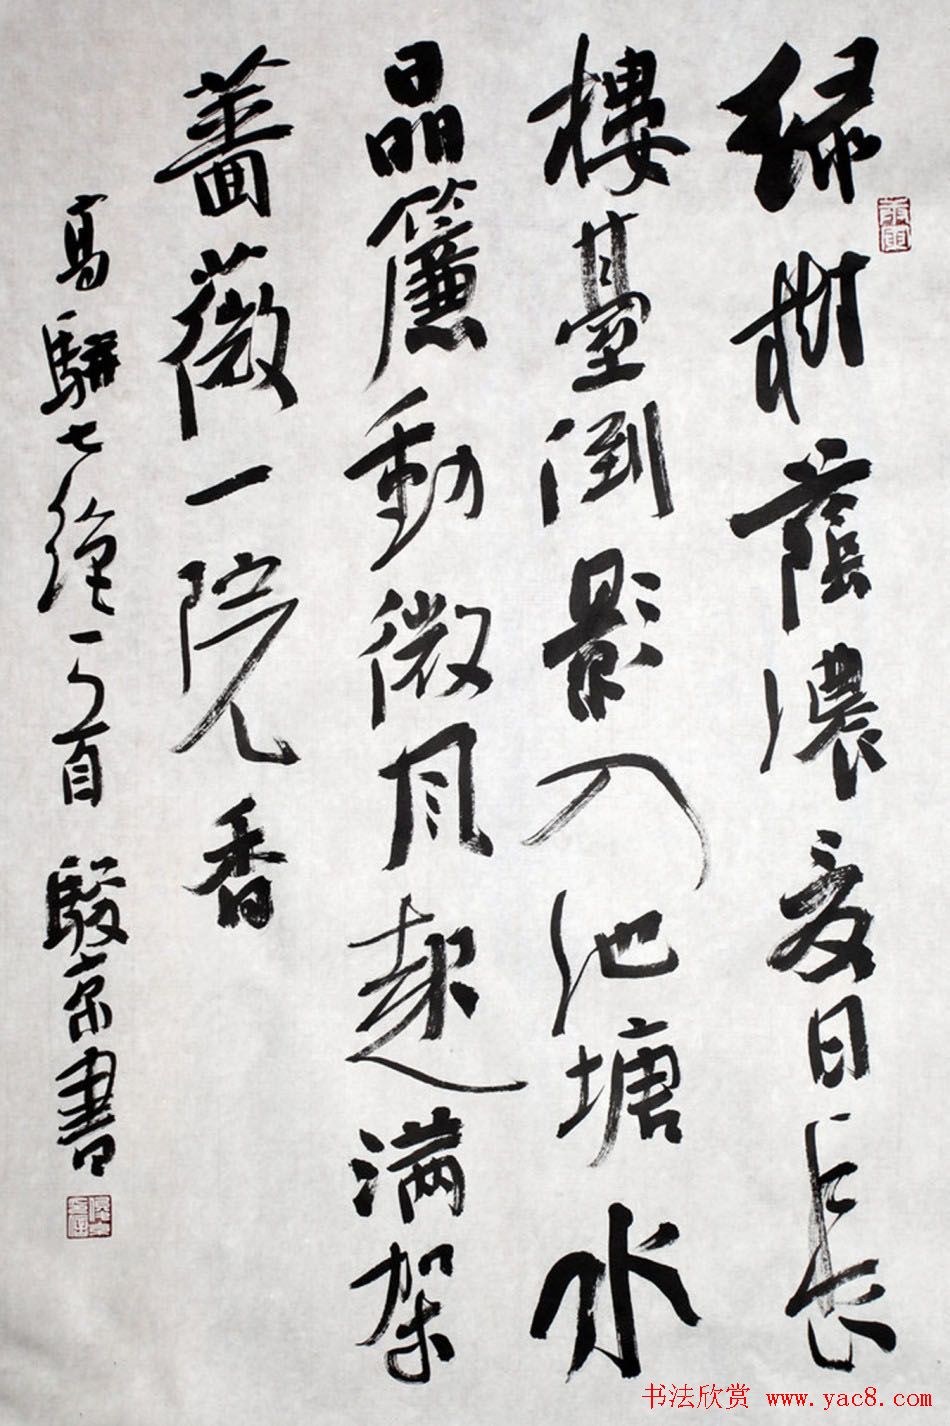 绿树蔭濃夏日長
樓臺倒影入池塘水
晶簾動微風起满架
薔薇一院香
高駢七絕一首 駿京書
书法欣赏 www.yac8.com